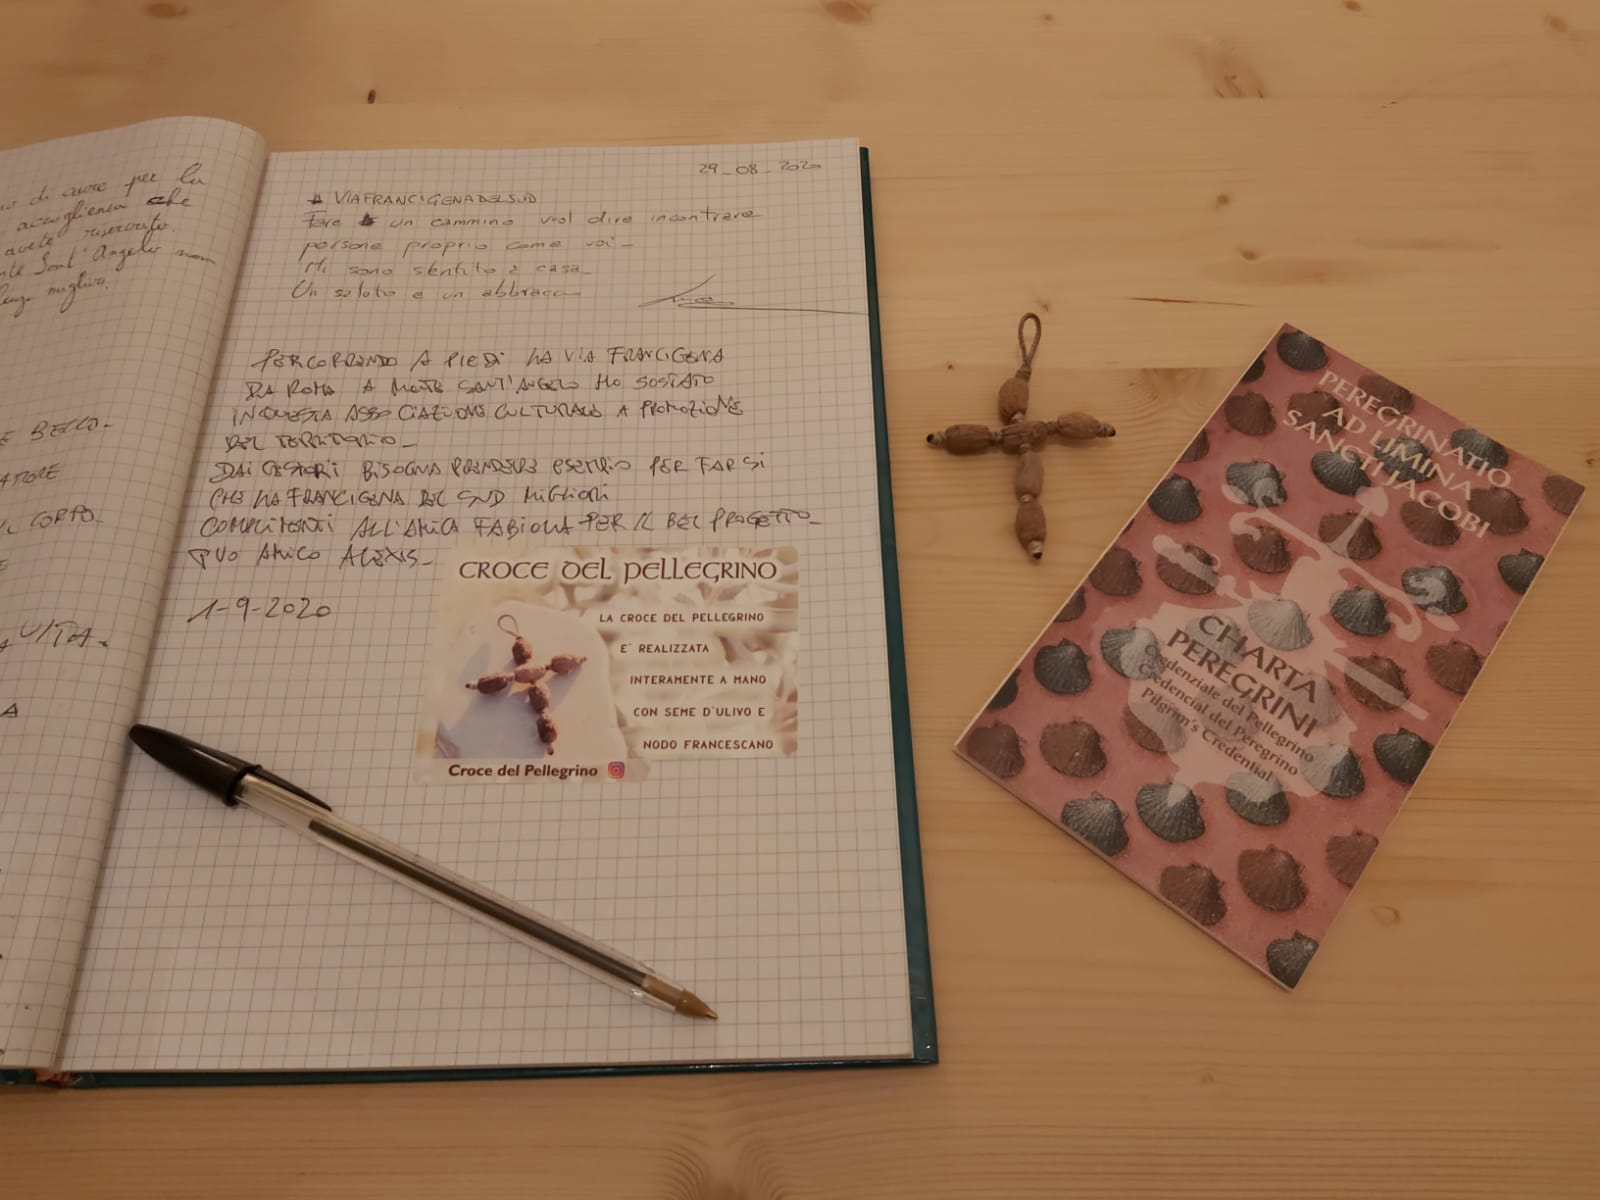 di cuore per la
accoglienza che
avete riservato.
Sant'Angelo non
migliore.
E BELLO-
ATORE
IL CORPO
VITA-
A
29_08_2020
# VIAFRANCIGENADELSUD
Fare un cammino vuol dire incontrare
persone proprio come voi_
Mi sono sentito a casa_
Un saluto e un abbraccio
PERCORRENDO A PIEDI LA VIA FRANCIGENA
DA ROMA A MONTE SANT'ANGELO HO SOSTATO
IN QUESTA ASSOCIAZIONE CULTURALE A PROMOZIONE
DEL TERRITORIO_
DAI GESTORI BISOGNA PRENDERE ESEMPIO PER FAR SI
CHE LA FRANCIGENA DEL SUD MIGLIORI
COMPLIMENTI ALL'AMICA FABIOLA PER IL BEL PROGETTO_
TUO AMICO ALEXIS_
1-9-2020
CROCE DEL PELLEGRINO
LA CROCE DEL PELLEGRINO
E' REALIZZATA
INTERAMENTE A MANO
CON SEME D'ULIVO E
NODO FRANCESCANO
Croce del Pellegrino
PEREGRINATIO
AD LIMINA
SANCTI JACOBI
CHARTA
PEREGRINI
Credenziale del Pellegrino
Credencial del Peregrino
Pilgrim's Credential